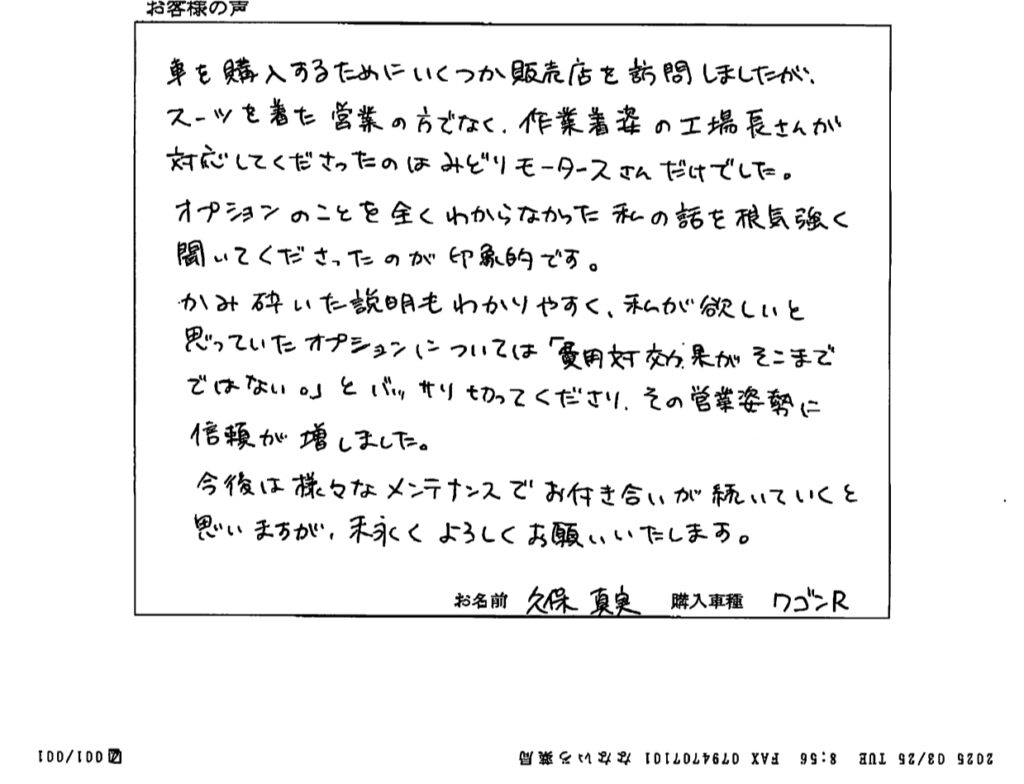 お客様の声
車を購入するためにいくつか販売店を訪問しましたが、
スーツを着た営業の方でなく、作業着姿の工場長さんが
対応してくださったのはみどりモータースさんだけでした。
オプションのことを全くわからなかった私の話を根気強く
聞いてくださったのが印象的です。
かみ砕いた説明もわかりやすく、私が欲しいと
思っていたオプションについては「費用対効果がそこまで
ではない。」とバッサリ切ってくださり、その営業姿勢に
信頼が増しました。
今後は様々なメンテナンスでお付き合いが続いていくと
思いますが、末永くよろしくお願いいたします。
お名前 久保 真実 購入車種 ワゴンR
2025 03/25 TUE 8:56 FAX 0794707101 なないろ薬局
001/001